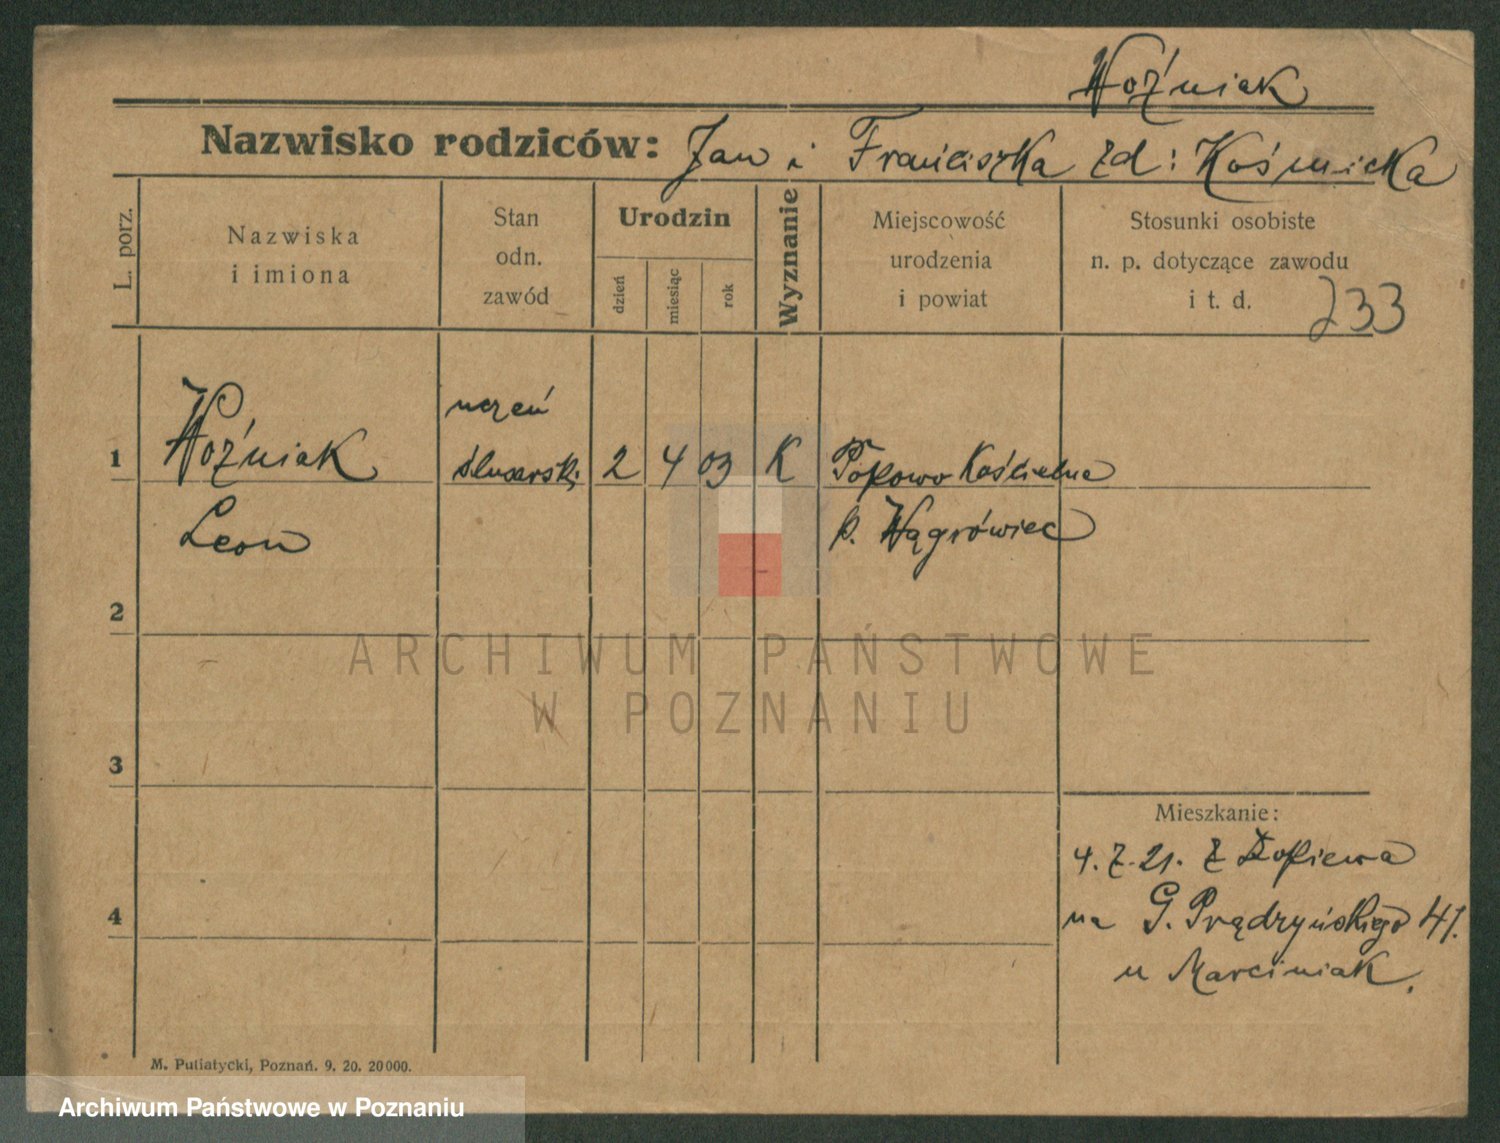 Woźniak
Nazwisko rodziców: Jan i Franciszka zd: Kośmicka
L. porz.
Nazwiska
i imiona
Stan
odn.
zawód
Urodzin
dzień
miesiąc
rok
Wyznanie
Miejscowość
urodzenia
i powiat
Stosunki osobiste
n. p. dotyczące zawodu
i t. d.
233
1
Woźniak
Leon
uczeń
ślusarski
2 4 03 K
Popowo Kościelne
p. Wągrówiec
2
3
4
Mieszkanie:
4. 7. 21. Z
na G. Prądzyńskiego 41.
u Marciniak.
M. Putiatycki, Poznań. 9. 20. 20000.
ARCHIWUM PAŃSTWOWE
W POZNANIU
Archiwum Państwowe w Poznaniu